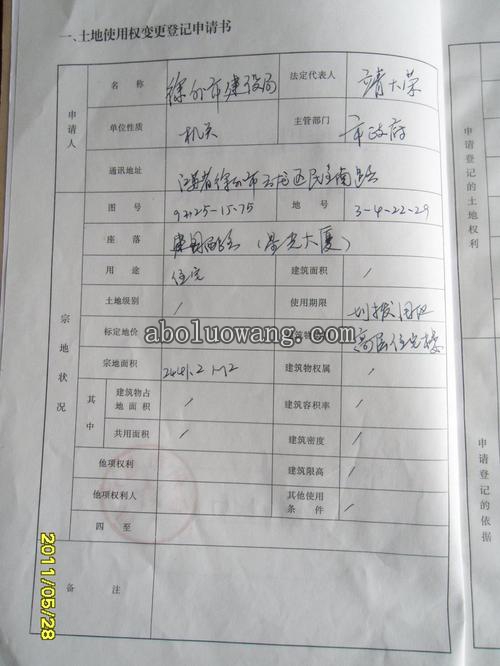 一、土地使用权变更登记申请书
申请人
名 称 徐州市建设局 法定代表人 靖大荣
单位性质 机关 主管部门 市政府
通讯地址 江苏省徐州市云龙区民主南路
图 号 92-25-15-75 地 号 3-4-22-29
宗地状况
座 落 建国西路(星光大厦)
用 途 住宅 建筑面积 /
土地级别 / 使用期限 划拨
标定地价 高层住宅楼
www.aboluowang.com
宗地面积 2441.2 M2 建筑物权属 /
其中 建筑物占地面积 / 建筑容积率 /
共用面积 / 建筑密度 /
他项权利 建筑限高 /
他项权利人 其他使用条件 /
四 至
备 注
申请登记的土地权利
申请登记的依据
2011/05/28